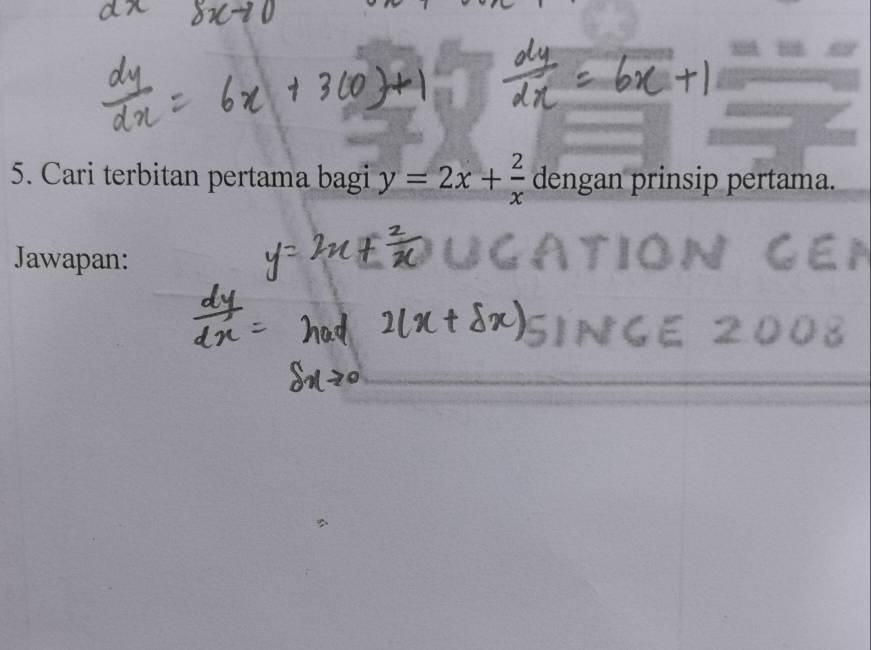 dx δx→0
dy/dx = 6x + 3(0)+1 dy/dx = 6x+1
教育学
5. Cari terbitan pertama bagi y = 2x + 2/x dengan prinsip pertama.
Jawapan: y = 2x + 2/x
EDUCATION CEN
dy/dx = had 2(x + δx)
δx→0
SINCE 2008